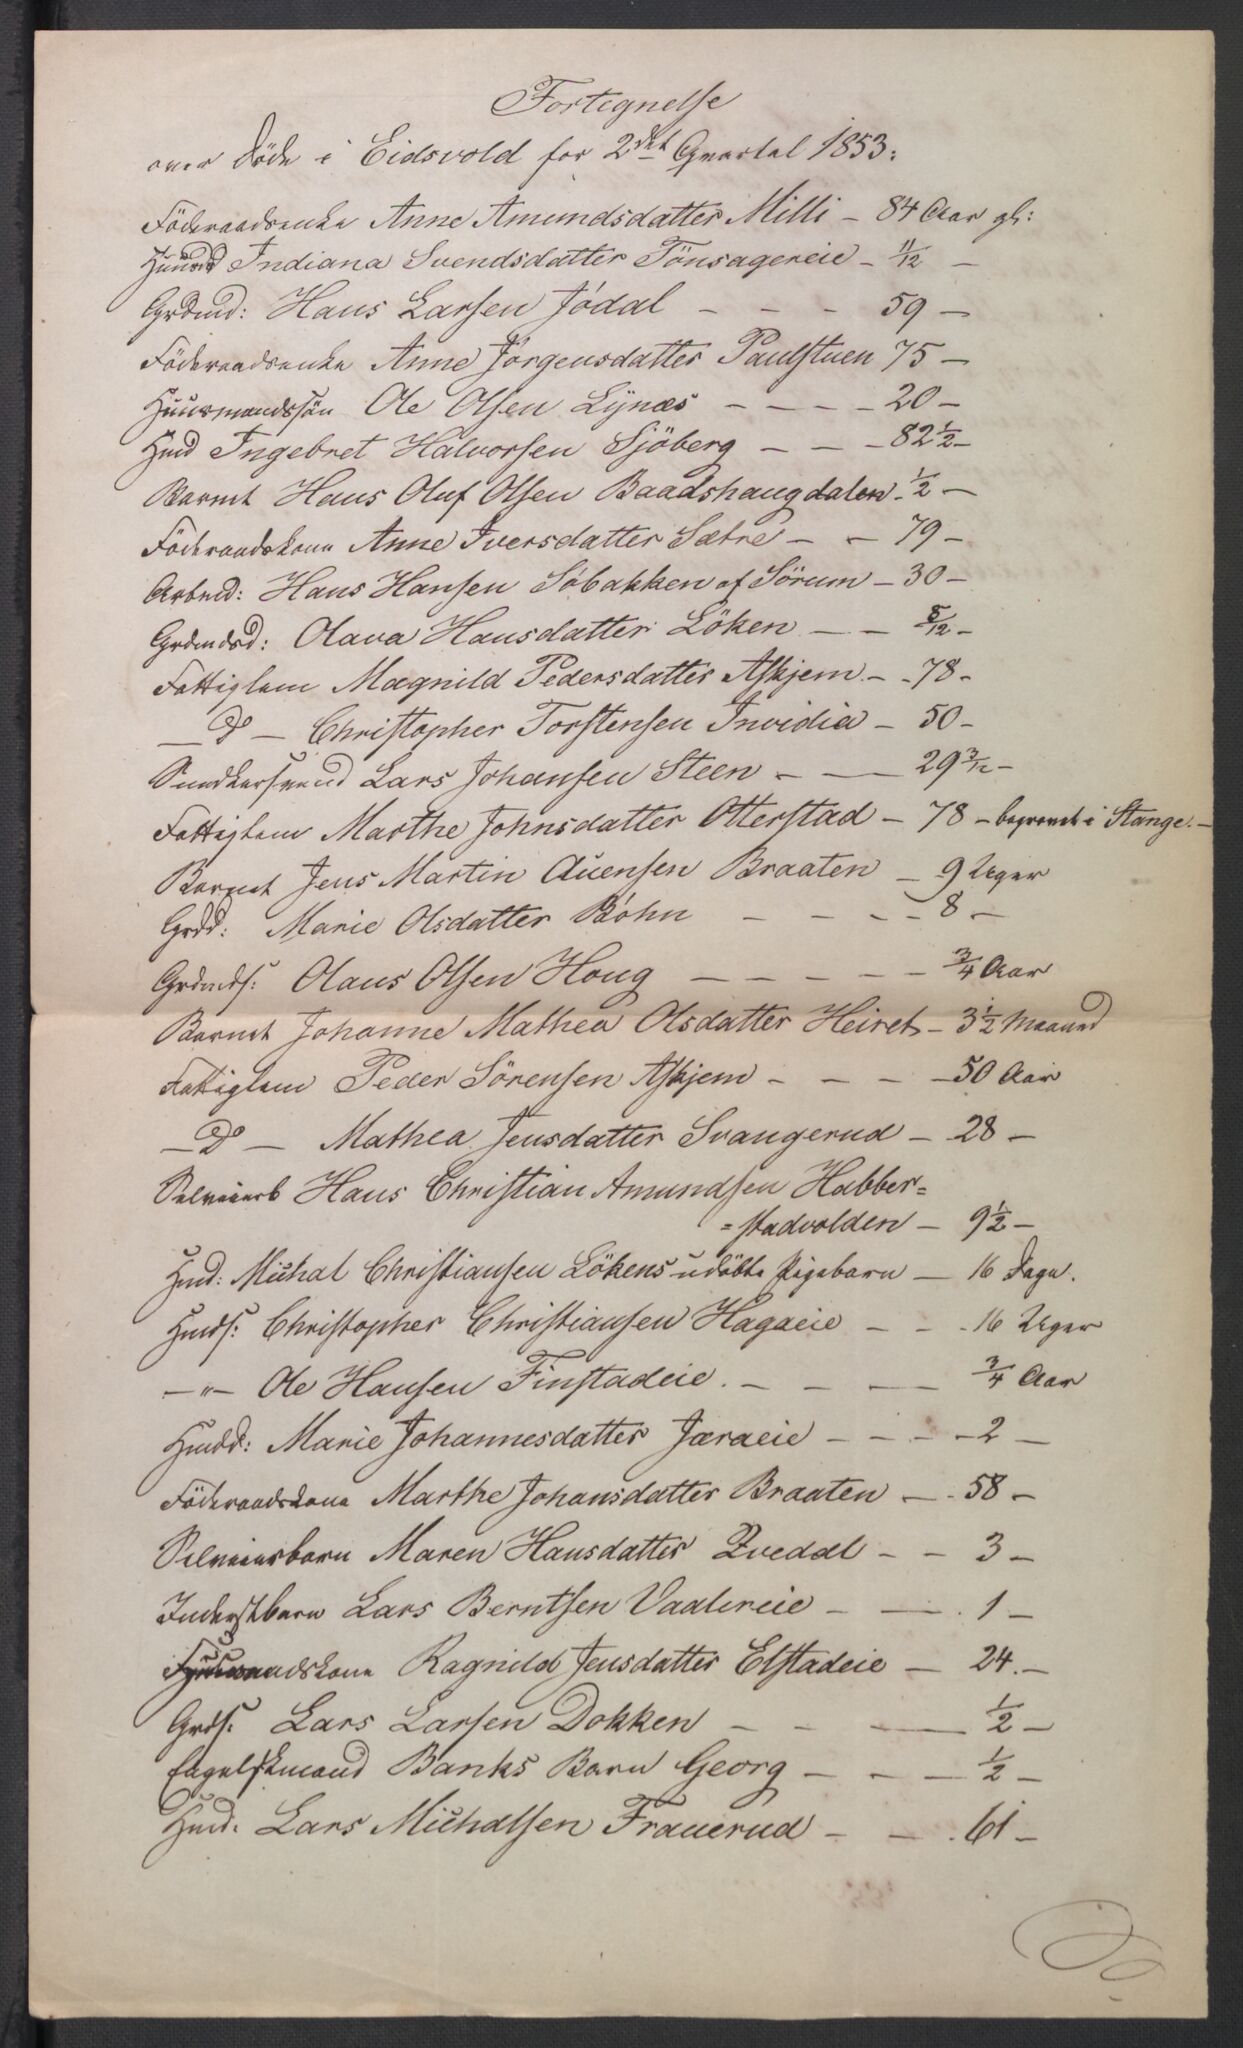 Fortegnelse
over døde i Eidsvold for 2det Qvartal 1853.
Föderaadsenke Anne Amundsdatter Milli - 84 Aar gl:
Huusd Indiana Svendsdatter Tönsagereie - 11/12 -
Grdmd: Hans Larsen Jödal - - - 59 -
Föderaadsenke Anne Jörgensdatter Paulstuen 75 -
Huusmandssön Ole Olsen Lynæs - - - - 20 -
Hmd Ingebret Halvorsen Sjöberg - - - 82 1/2 -
Barnet Hans Oluf Olsen Baadshaugdalen - 1/2 -
Föderaadskone Anne Iversdatter Sætre - - 79 -
Arbeid: Hans Hansen Söbakken af Sörum - 30 -
Grdmdsd: Olava Hansdatter Löken - - 5/12 -
Fattiglem Magnild Pedersdatter Askjem - - 78 -
- Do - Christopher Torstensen Invidia - 50 -
Lars Johansen Steen - - 29 3/12 -
Fattiglem Marthe Johnsdatter Otterstad - 78 - begravet i Stange. -
Barnet Jens Martin Auensen Braaten - 9 Uger
Grdd: Marie Olsdatter Böhn - - - - 8 -
Grdmds: Olaus Olsen Houg - - - - - 3/4 Aar
Barnet Johanne Mathea Olsdatter Heiret - 3 1/2 Maaned
Fattiglem Peder Sörensen Askjem - - - - 50 Aar
- Do - Mathea Jensdatter Svangerud - 28 -
Selveierb Hans Christian Amundsen Habber=
=stadvolden - 9 1/2 -
Hmd: Michal Christiansen Lökens udöbte Pigebarn - 16 Dage.
Hmds: Christopher Christiansen Hagaeie - - - 16 Uger
- " - Ole Hansen Finstadeie. - - - 3/4 Aar
Hmdd: Marie Johannesdatter Jæraeie - - - - 2 -
Föderaadskone Marthe Johansdatter Braaten - - 58 -
Selveierbarn Maren Hansdatter Qvedal - - 3 -
Inderstbarn Lars Berntsen Vaalereie - - . 1 -
Huusmandskone Ragnild Jensdatter Elstadeie - 24. -
Grds: Lars Larsen Dokken - - - 1/2 -
Engelskmand Banks Barn Georg - - - 1/2 -
Hmd. Lars Michalsen Frauerud - - . 61 -